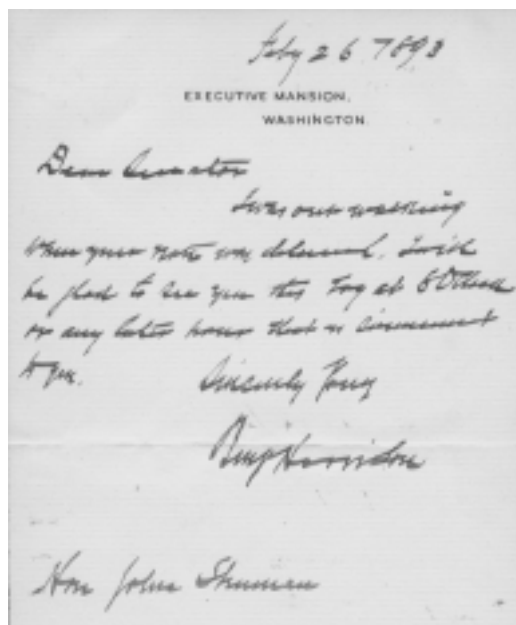 Feby 26 1893
EXECUTIVE MANSION,
WASHINGTON.
Dear Senator
I was out walking
when your note was delivered. I will
be glad to see you this Evg at 8 O'clock
or any later hour that is convenient
to you.
Sincerely Yours
Benj Harrison
Hon John Sherman